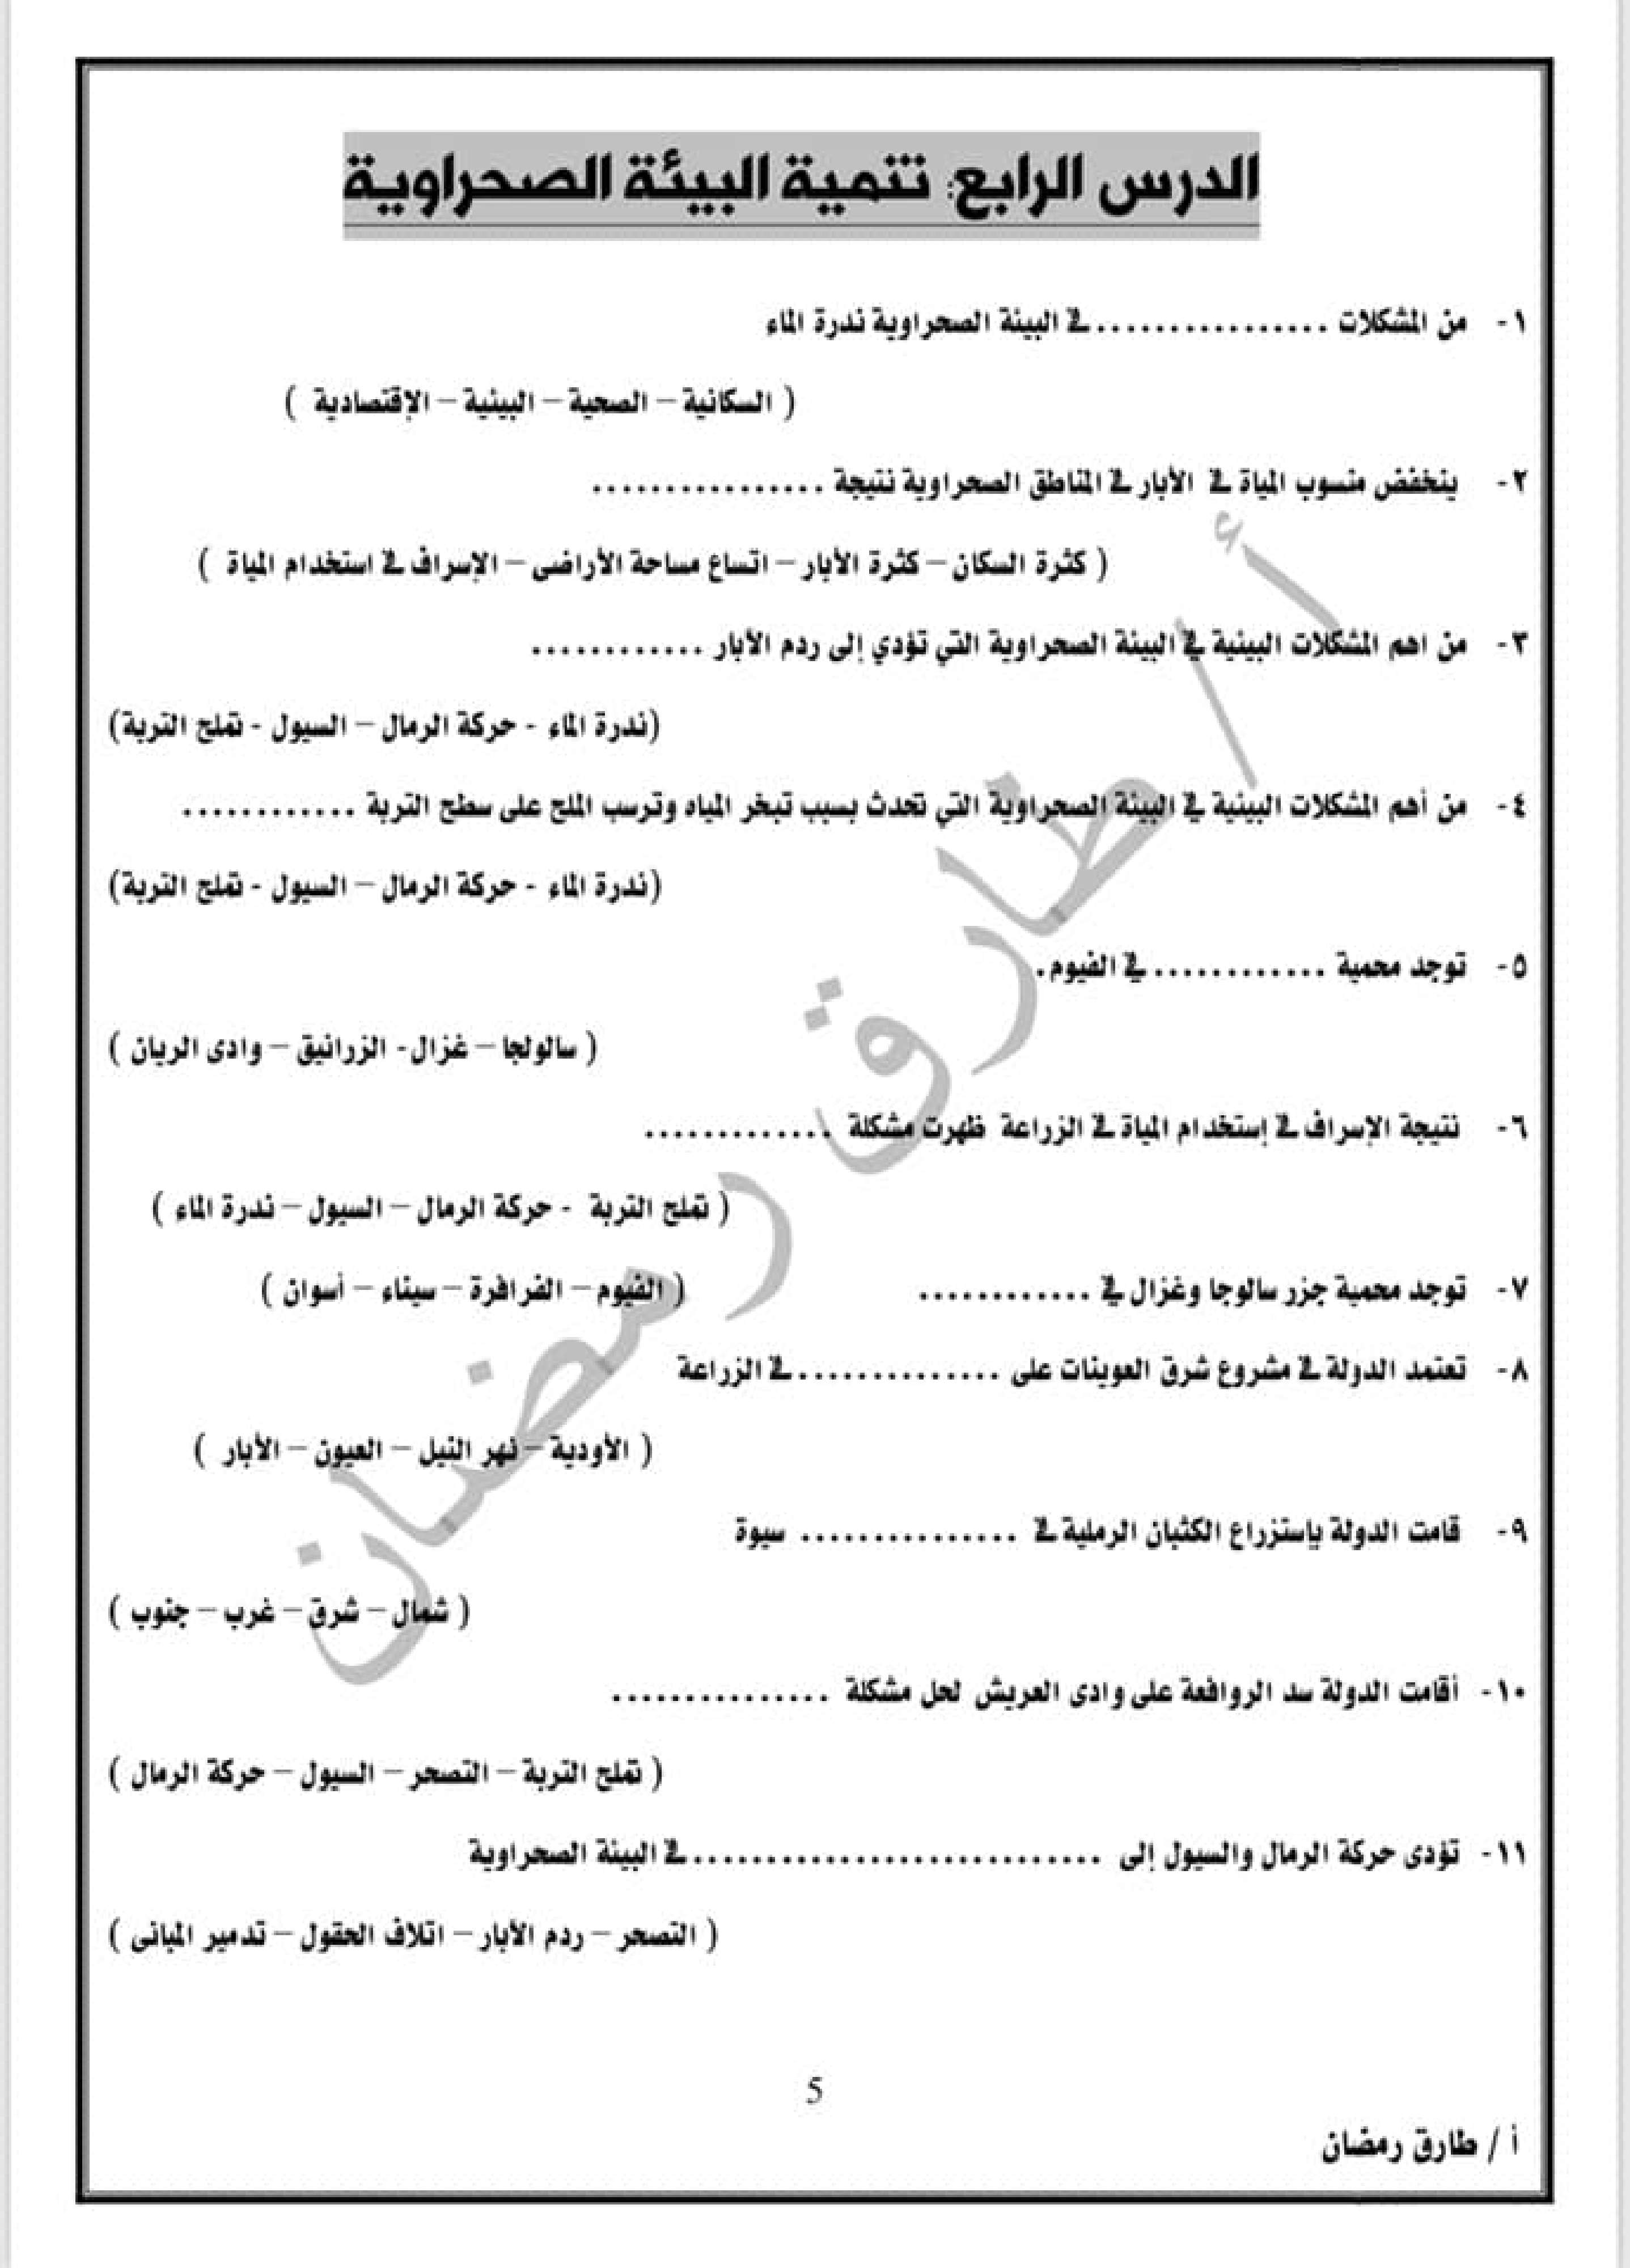 الدرس الرابع: تنمية البيئة الصحراوية
١- من المشكلات ................في البيئة الصحراوية ندرة الماء
( السكانية – الصحية – البيئية – الإقتصادية )
٢- ينخفض منسوب المياة في الأبار في المناطق الصحراوية نتيجة ................
( كثرة السكان – كثرة الأبار – اتساع مساحة الأراضى – الإسراف في استخدام المياة )
٣- من اهم المشكلات البيئية في البيئة الصحراوية التي تؤدي إلى ردم الأبار ............
(ندرة الماء - حركة الرمال – السيول - تملح التربة)
٤- من أهم المشكلات البيئية في البيئة الصحراوية التي تحدث بسبب تبخر المياه وترسب الملح على سطح التربة ............
(ندرة الماء - حركة الرمال – السيول - تملح التربة)
٥- توجد محمية ............في الفيوم.
( سالولجا – غزال- الزرانيق – وادى الريان )
٦- نتيجة الإسراف في إستخدام المياة في الزراعة ظهرت مشكلة .............
( تملح التربة - حركة الرمال – السيول – ندرة الماء )
٧- توجد محمية جزر سالوجا وغزال في ............ ( الفيوم – الفرافرة – سيناء – أسوان )
٨- تعتمد الدولة في مشروع شرق العوينات على ..............في الزراعة
( الأودية – نهر النيل – العيون – الأبار )
٩- قامت الدولة بإستزراع الكثبان الرملية في ............... سيوة
( شمال – شرق – غرب – جنوب )
١٠- أقامت الدولة سد الروافعة على وادى العريش لحل مشكلة ...............
( تملح التربة – التصحر – السيول – حركة الرمال )
١١- تؤدى حركة الرمال والسيول إلى ............................في البيئة الصحراوية
( التصحر – ردم الأبار – اتلاف الحقول – تدمير المبانى )
أ / طارق رمضان
5
أ / طارق رمضان